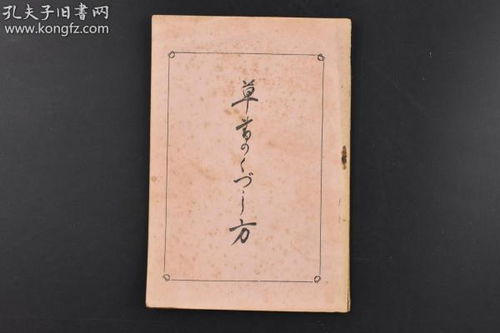 孔夫子旧书网
www.kongfz.com
草書のくづし方